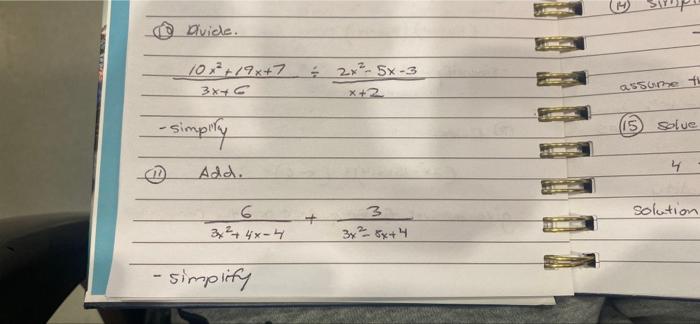 ⑩ Divide.
10x²+19x+7 / 3x+6 ÷ 2x²-5x-3 / x+2
-simplify
⑪ Add.
6 / 3x²+4x-4 + 3 / 3x²-8x+4
-simplify
⑭
assume
⑮ Solve
4
solution